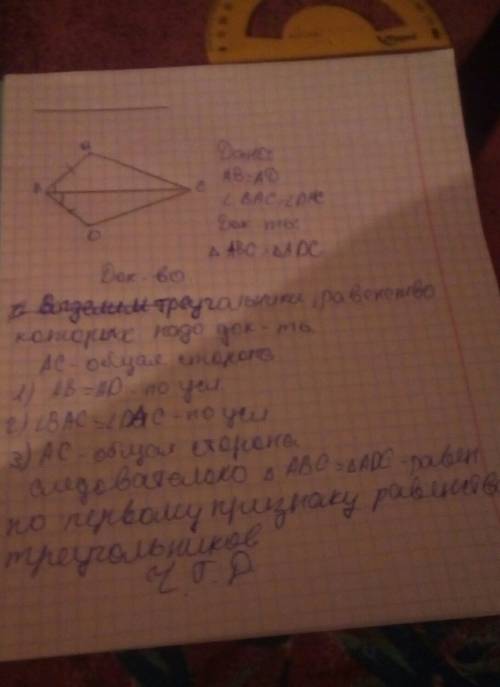 В
А
С
D
Дано:
AB=AD
∠BAC=∠DAC
Док-ть:
△ABC=△ADC
Док-во
Выделим треугольники, равенство
которых надо док-ть
AC - общая сторона
1) AB=AD - по усл
2) ∠BAC=∠DAC - по усл
3) AC - общая сторона
следовательно △ABC=△ADC - равен
по первому признаку равенства
треугольников
Ч.Т.Д